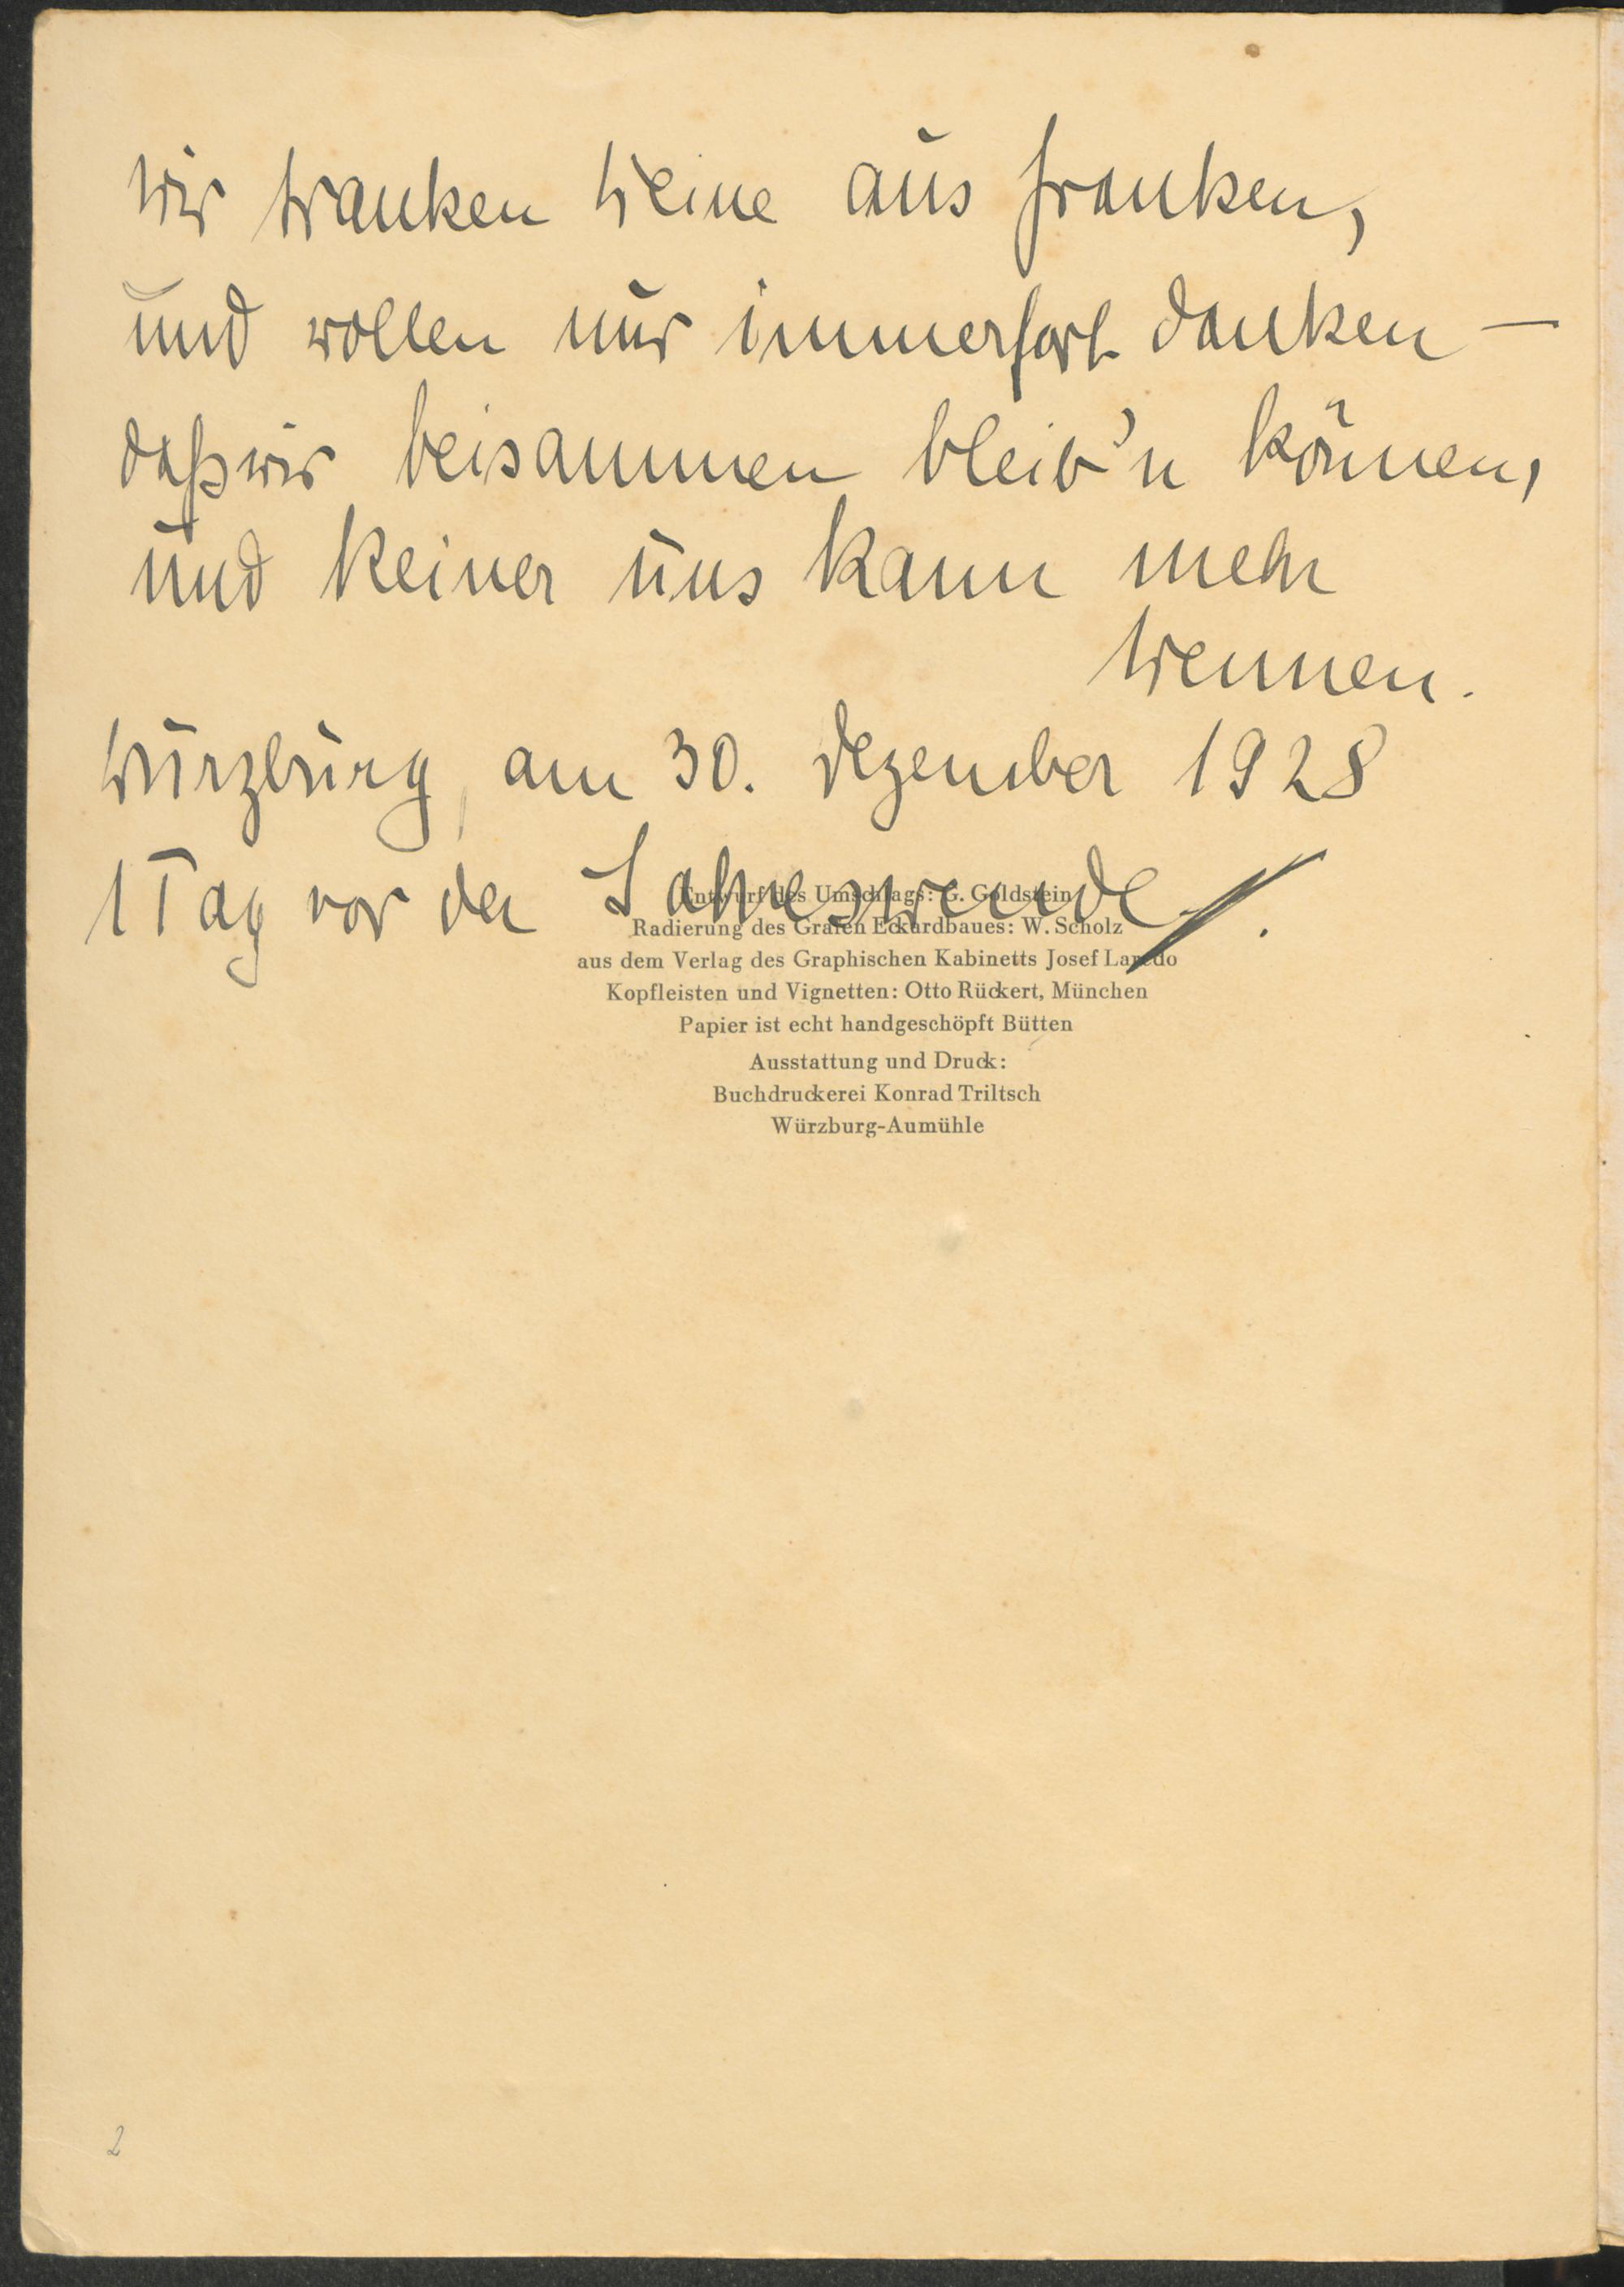 Wir tranken Weine aus Franken,
und wollen nur immerfort danken –
daß wir beisammen bleib'n können,
und keiner uns kann mehr
trennen.
Würzburg, am 30. Dezember 1928
1 Tag vor der Jahreswende.
Entwurf des Umschlags: G. Goldstein
Radierung des Grafen Eckardbaues: W. Scholz
aus dem Verlag des Graphischen Kabinetts Josef Laredo
Kopfleisten und Vignetten: Otto Rückert, München
Papier ist echt handgeschöpft Bütten
Ausstattung und Druck:
Buchdruckerei Konrad Triltsch
Würzburg-Aumühle
2